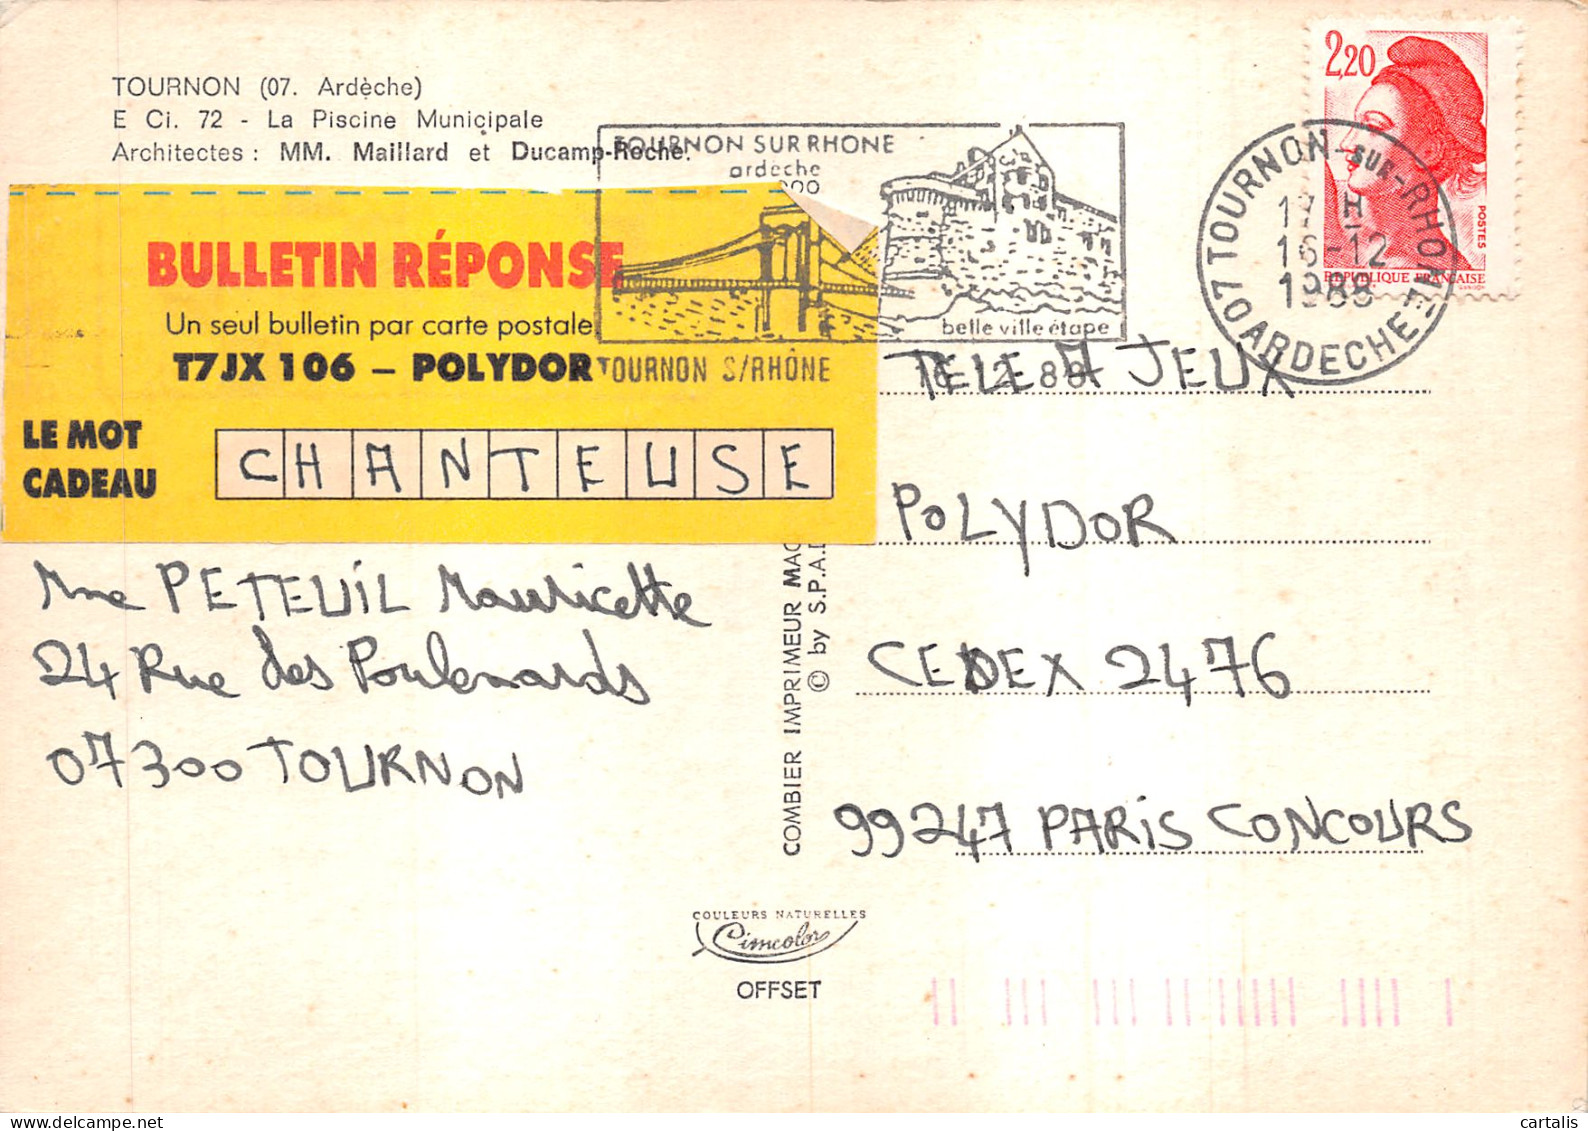 TOURNON (07. Ardèche)
E Ci. 72 - La Piscine Municipale
Architectes : MM. Maillard et Ducamp-Roche.
TOURNON SUR RHONE
ardèche
belle ville étape
TOURNON S/RHÔNE
2,20
POSTES
REPUBLIQUE FRANÇAISE
07 TOURNON-SUR-RHONE
17 H
16-12
1988
ARDECHE
BULLETIN RÉPONSE
Un seul bulletin par carte postale
T7JX 106 – POLYDOR
LE MOT
CADEAU
CHANTEUSE
TELE 7 JEUX
POLYDOR
CEDEX 2476
99247 PARIS CONCOURS
Mme PETEUIL Mauricette
24 Rue des Poulenards
07300 TOURNON
COMBIER IMPRIMEUR
© by S.P.A.D
COULEURS NATURELLES
Cimcolor
OFFSET
cartalis